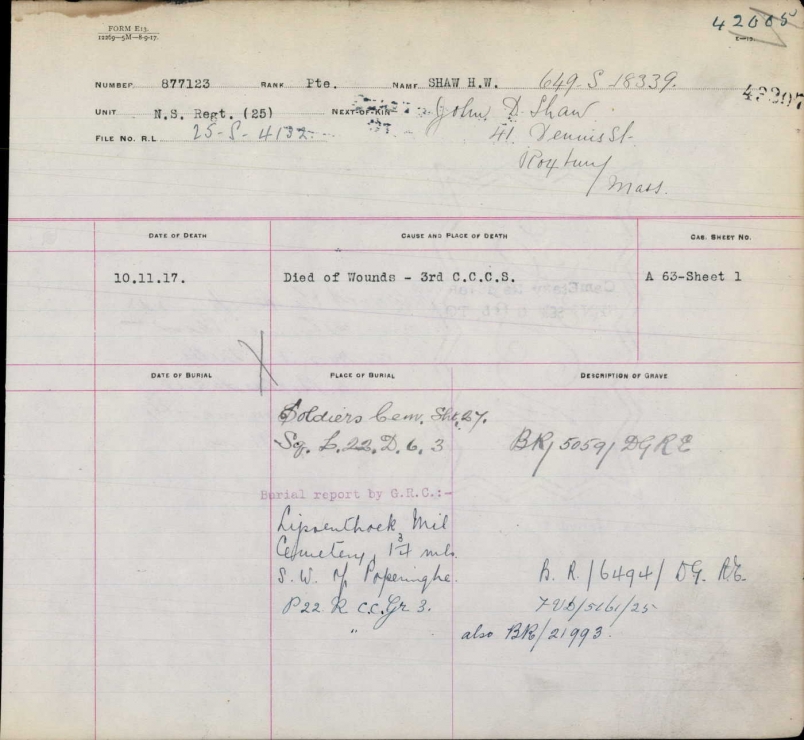 FORM E13.
12269—5M—8-9-17.
42005
NUMBER 877123 RANK Pte. NAME SHAW H.W. 649-S-18339.
UNIT N.S. Regt. (25) NEXT-OF-KIN John D. Shaw
FILE NO. R.L. 25-S-4132 41 Dennis St.
Roxbury
Mass.
DATE OF DEATH CAUSE AND PLACE OF DEATH CAS. SHEET NO.
10.11.17. Died of Wounds - 3rd C.C.C.S. A 63-Sheet 1
DATE OF BURIAL PLACE OF BURIAL DESCRIPTION OF GRAVE
Soldiers Cem. Sht. 27.
Sq. L.22.D.6.3 BR/5059/DGRE
Burial report by G.R.C.:-
Lijssenthoek Mil
Cemetery, 1 3/4 mls.
S.W. of Poperinghe. B.R./6494/DG.RE.
P 22 R C.C. Gr 3.
" also BR/21993.